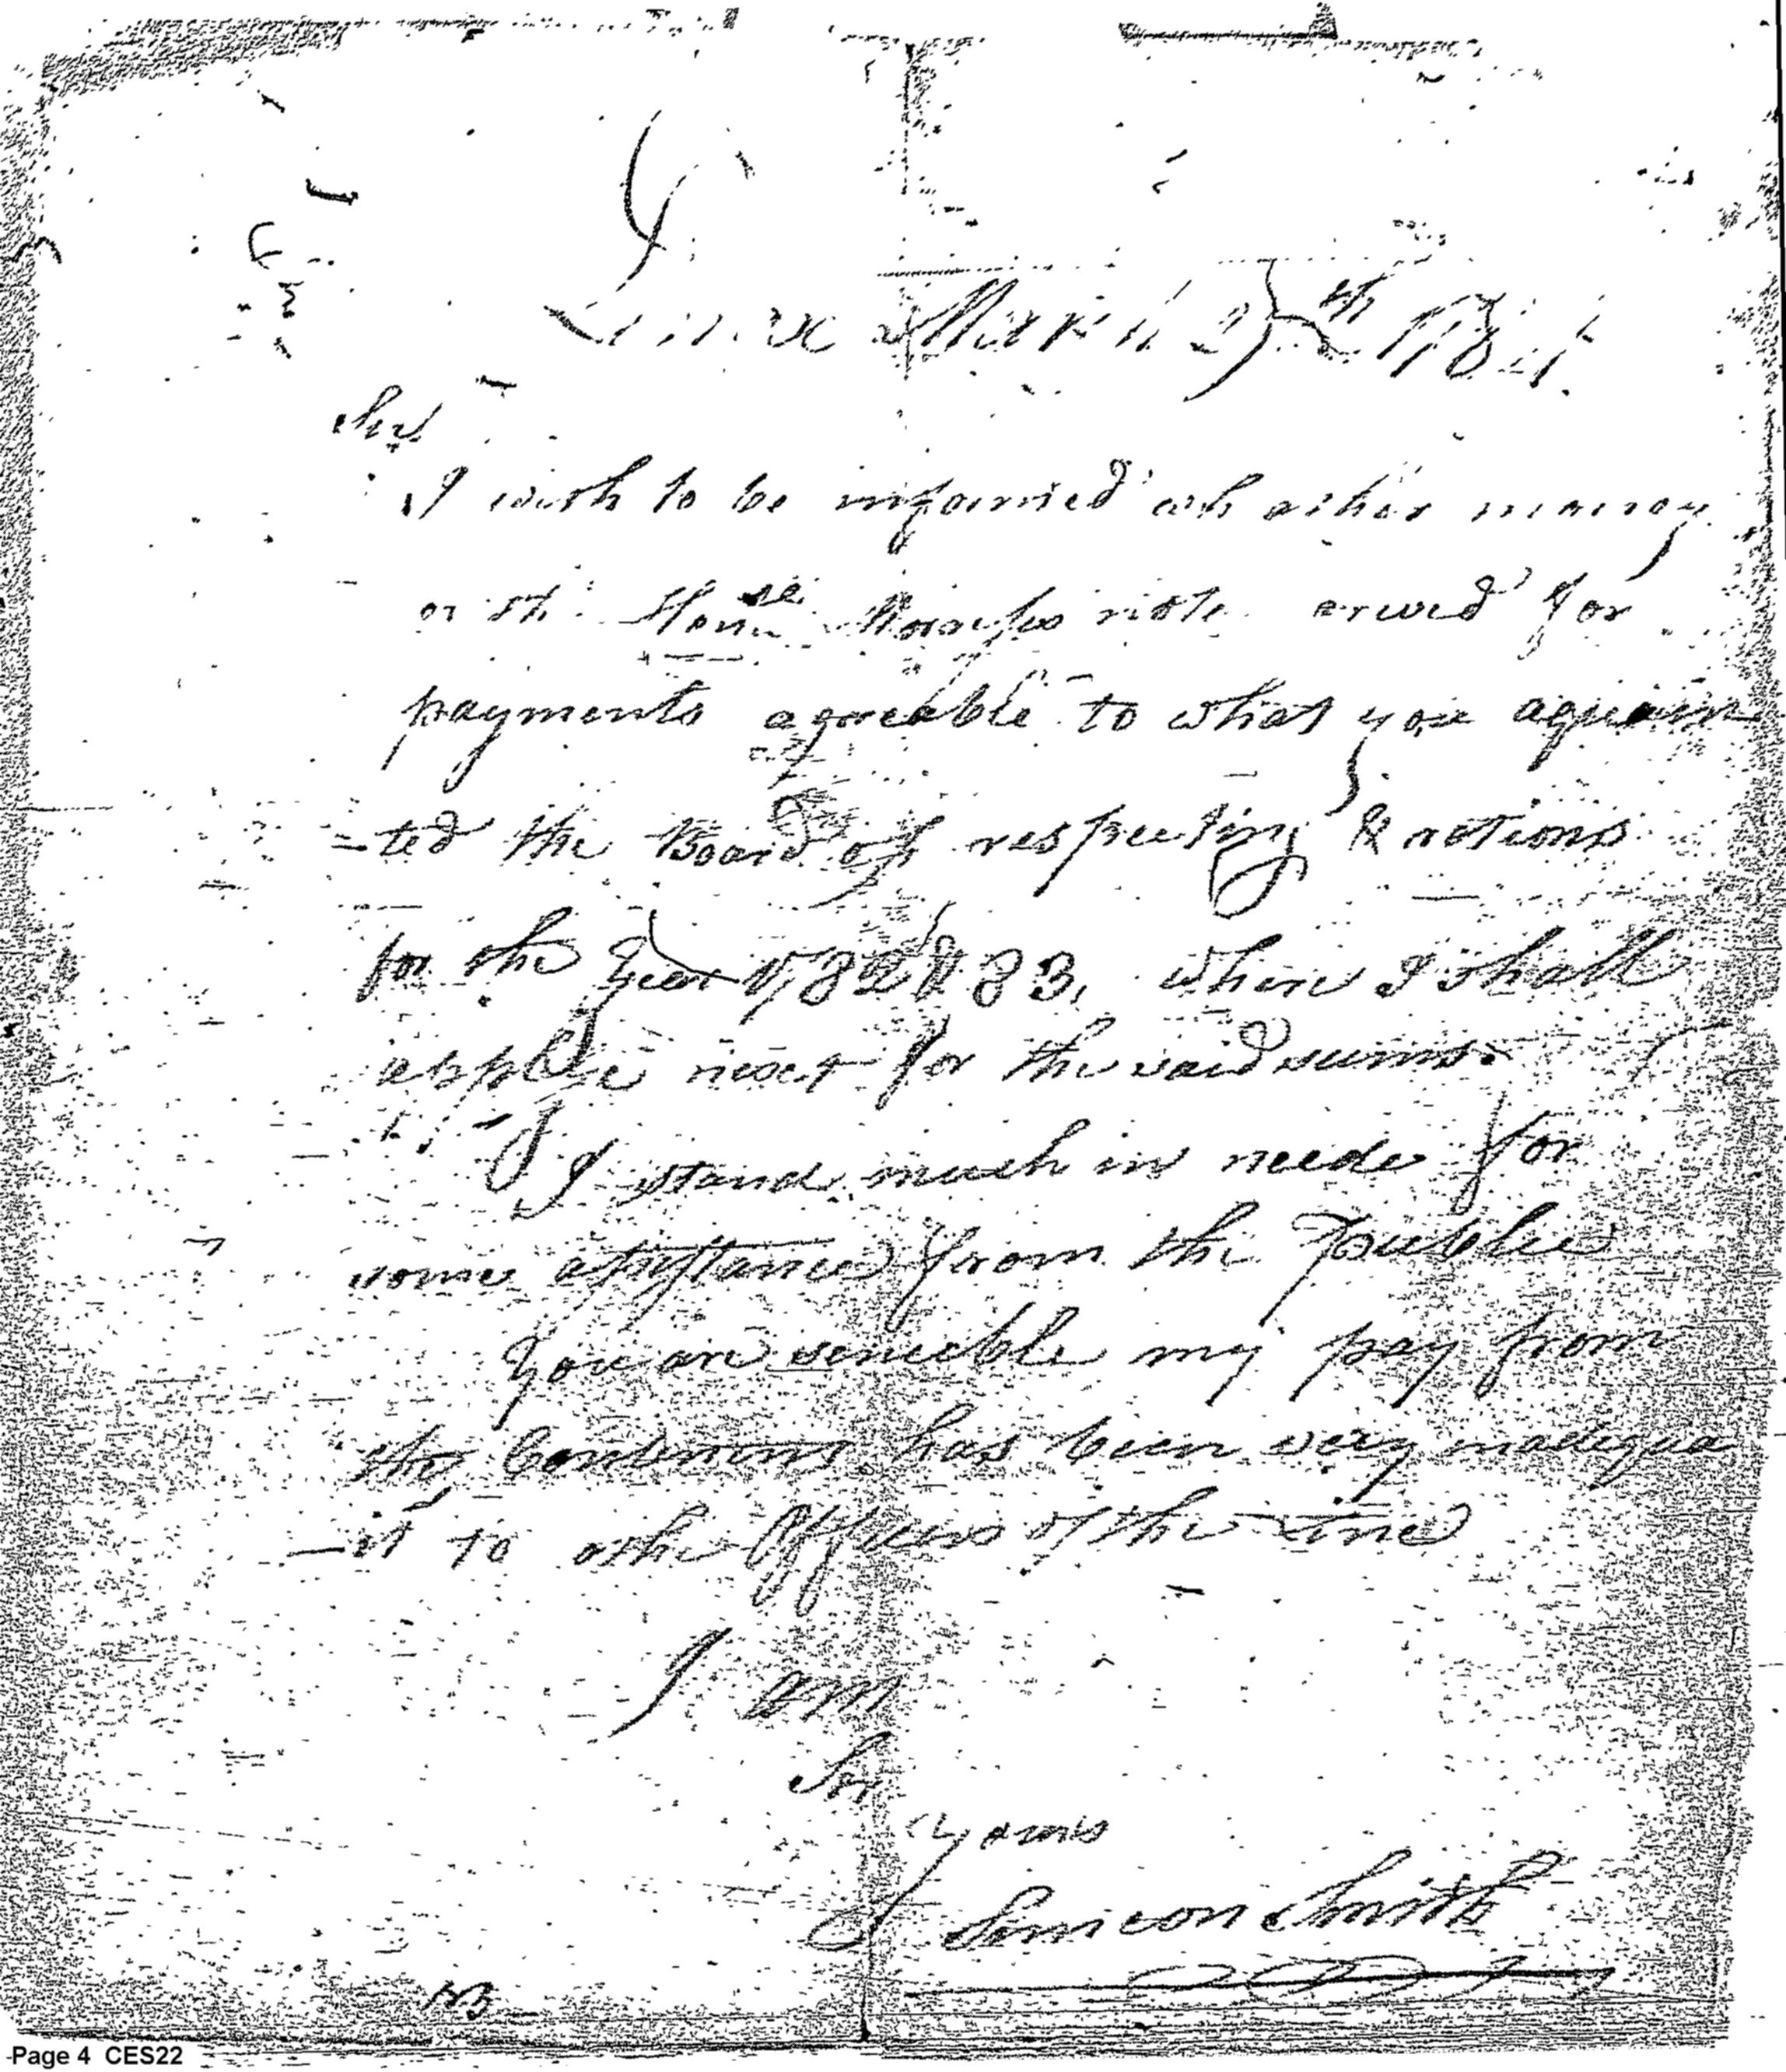 March 25th 1784.
Sir
I wish to be informed wh ather money
or
payments agreable to what you aquain
-ted the Board of respecting & rations
for the Year 1782 & 83, where I shall
applye next for the said sums.
I stand much in neede for
some assistance from the Publie
You are senceble my pay from
the has been very inadequa
-it to othe Officers of the Line
I am
Sir
yours
Simeon Smith
-Page 4 CES22